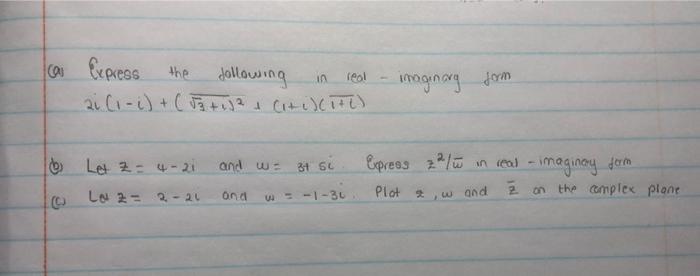 (a) Express the following in real - imaginary form
2i (1-i) + (√3+i)² + (1+i)(1+i)
(b) Let z = 4-2i and w = 3+5i. Express z²/w̅ in real - imaginary form
(c) Let z = 2-2i and w = -1-3i. Plot z, w and z̅ on the complex plane